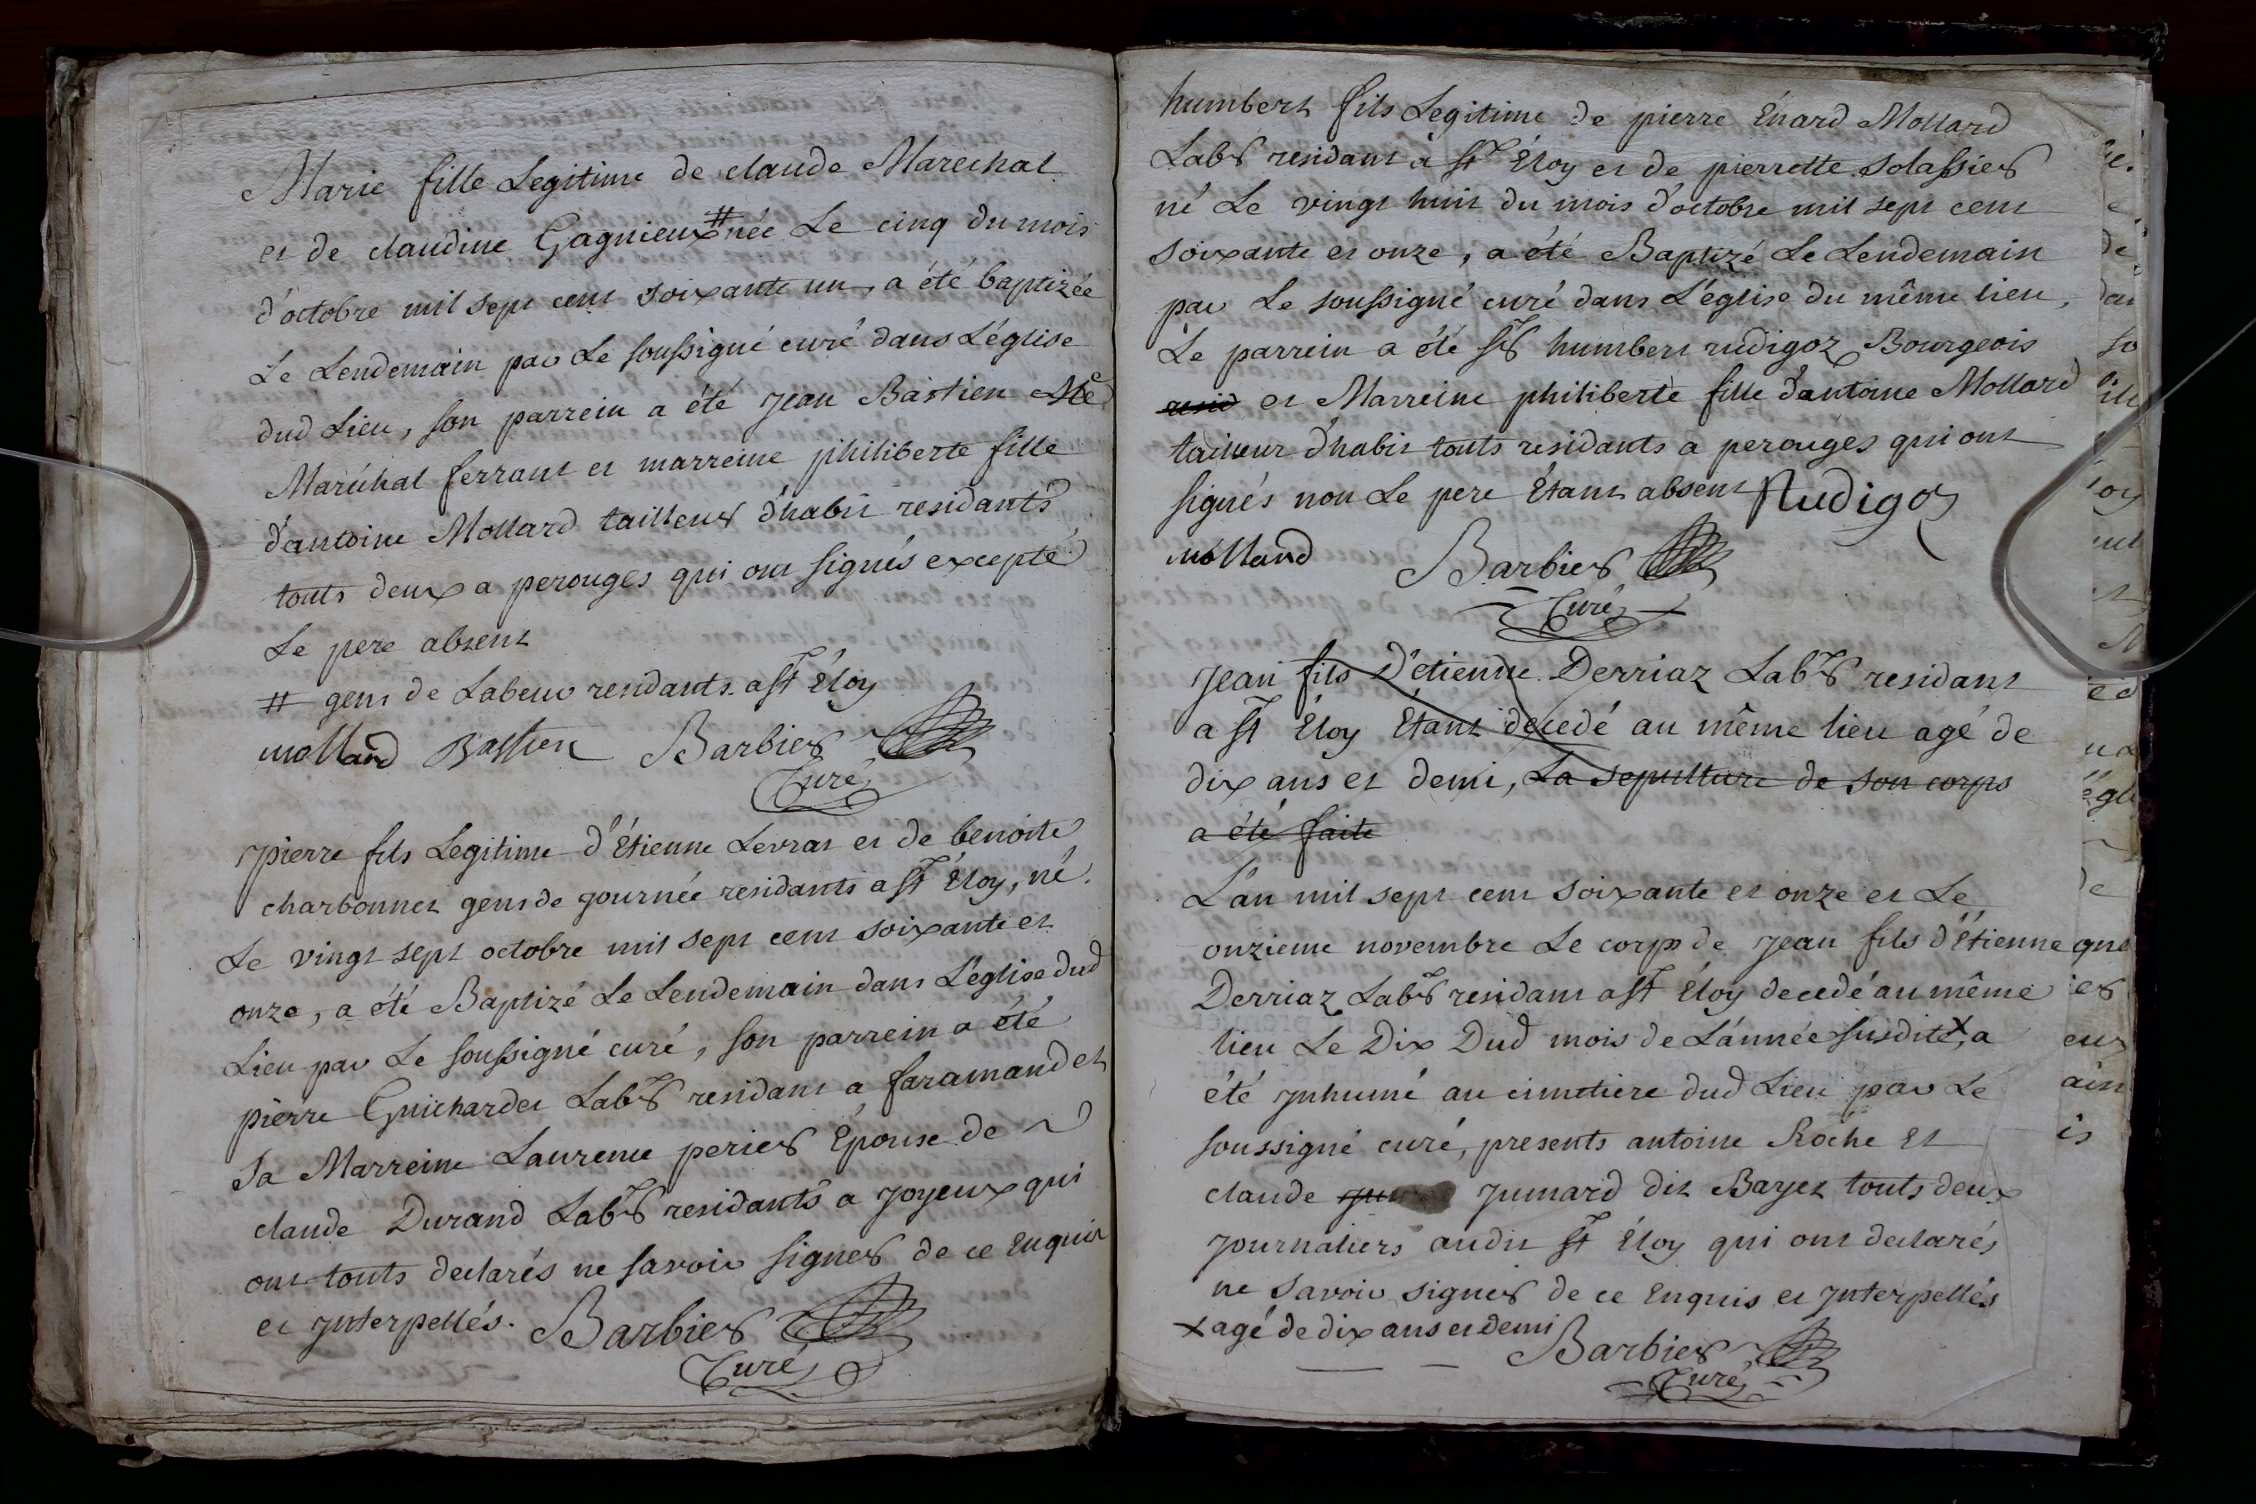 Marie fille Legitime de claude Marechal
et de claudine Gagnieux # née Le cinq du mois
d'octobre mil sept cent soixante un, a été baptizée
Le Lendemain par Le soussigné curé dans L'église
dud Lieu, son parrein a été jean Bastien Me
Maréchal ferrant et marreine philiberte fille
d'antoine Mollard tailleur d'habit residants
touts deux a perouges qui ont signés excepté
Le pere absent
# gens de Labeur residants a st Éloy
mollard Bastien Barbier
Curé
pierre fils Legitime d'Étienne Levrat et de benoite
charbonnet gens de journée residants a st Éloy, né
Le vingt sept octobre mil sept cent soixante et
onze, a été Baptizé Le Lendemain dans L'église dud
Lieu par Le soussigné curé, son parrein a été
pierre Guichardet Labr residant a faramand et
sa Marreine Laurence perier Épouse de
claude Durand Labr residants a joyeux qui
ont touts declarés ne savoir signer de ce Enquis
et jnterpellés. Barbier
Curé
humbert fils Legitime de pierre Énard Mollard
Labr residant a st Éloy et de pierrette solassier
né Le vingt huit du mois d'octobre mil sept cent
soixante et onze, a été Baptizé Le Lendemain
par Le soussigné curé dans L'église du même lieu,
Le parrein a été sr humbert rudigoz Bourgeois
resid et Marreine philiberte fille d'antoine Mollard
tailleur d'habit touts residants a perouges qui ont
signés non Le pere Étant absent Rudigoz
mollard Barbier
Curé
jean fils D'etienne Derriaz Labr residant
a st Éloy Étant decedé au même lieu agé de
dix ans et demi, La sepulture de son corps
a été faite
L'an mil sept cent soixante et onze et Le
onzieme novembre Le corps de jean fils d'Étienne
Derriaz Labr residant a st Éloy decedé au même
lieu Le Dix Dud mois de L'année susdite x, a
été jnhumé au cimetiere dud Lieu par Le
soussigné curé, presents antoine Roche Et
claude jumard dit Bayet touts deux
journaliers audit st Éloy qui ont declarés
ne savoir signer de ce Enquis et jnterpellés
x agé de dix ans et demi Barbier
Curé